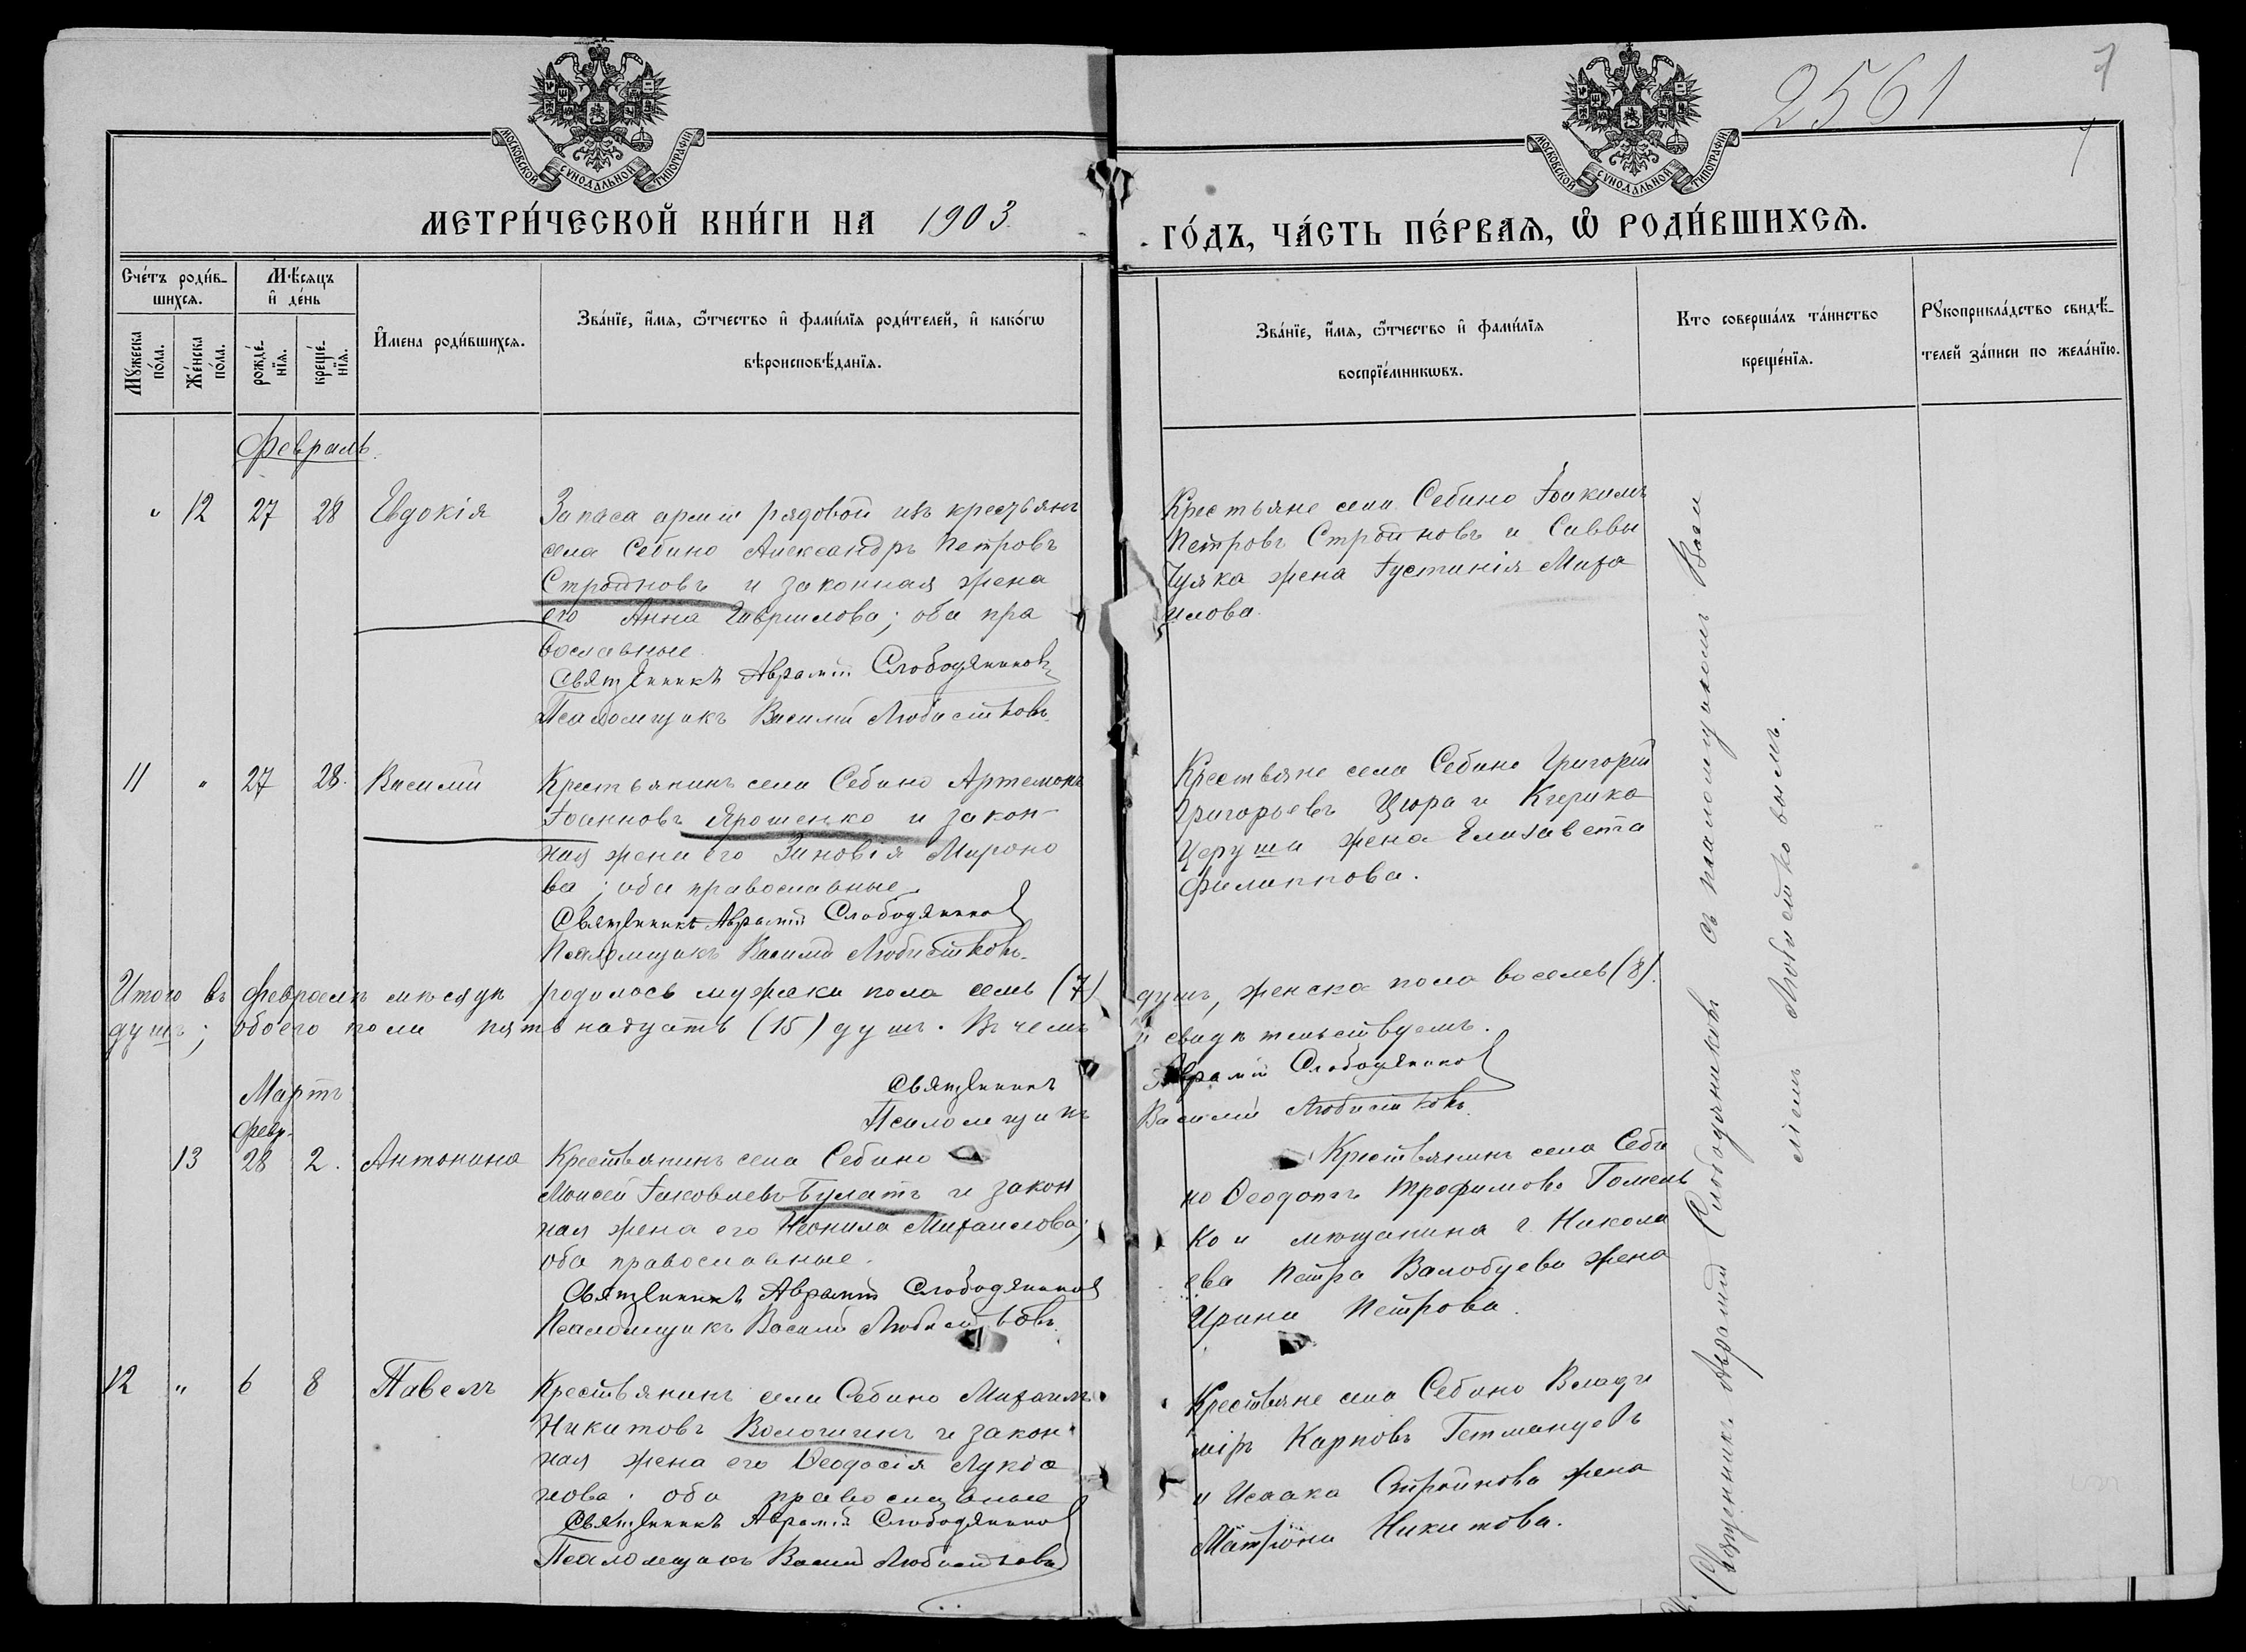 2561
7
МОСКОВСКОЙ СѴНОДАЛЬНОЙ ТИПОГРАФІИ
МОСКОВСКОЙ СѴНОДАЛЬНОЙ ТИПОГРАФІИ
МЕТРИ́ЧЕСКОЙ КНИ́ГИ НА 1903.
ГО́ДЪ, ЧА́СТЬ ПЕ́РВАѦ, Ѽ РОДИ́ВШИХСѦ.
Сче́тъ роди́в-
шихсѧ.
Мꙋ́жеска
по́ла.
Же́нска
по́ла.
Мѣ́сяцъ
и҆ де́нь
рожде́-
нїѧ.
креще́-
нїѧ.
И҆́мена роди́вшихсѧ.
Зва́нїе, и҆́мѧ, ѻ҆́тчество и҆ фами́лїѧ роди́телей, и҆ како́гѡ
вѣроисповѣ́данїѧ.
Зва́нїе, и҆́мѧ, ѻ҆́тчество и҆ фами́лїѧ
воспрїе́мникѡвъ.
Кто соверша́лъ та́инство
креще́нїѧ.
Рꙋкоприкла́дство свидѣ́-
телей за́писи по жела́нїю.
Февраль.
" 12 27 28 Евдокія
Запаса арміи рядовой изъ крестьянъ
села Себино Александръ Петровъ
Стройновъ и законная жена
его Анна Гаврилова; оба пра
вославные.
Священникъ Аврамій Слободяниковъ
Псаломщикъ Василій Любистковъ.
Крестьяне села Себино Іоакимъ
Петровъ Стройновъ и Саввы
Чуяка жена Іустинія Миха
илова.
11 " 27 28. Василій
Крестьянинъ села Себино Артемонъ
Іоанновъ Ярошенко и закон-
ная жена его Зиновія Мироно
ва; оба православные.
Священникъ Аврамій Слободяниковъ
Псаломщикъ Василій Любистковъ.
Крестьяне села Себино Григорій
Григорьевъ Цюра и
жена Елизавета
Филиппова.
Итого въ Февралѣ мѣсяцѣ родилось мужеска пола семь (7) душъ, женска пола восемь (8).
душъ; обоего пола пятьнадцать (15) душъ. Въ чемъ и свидѣтельствуемъ.
Священникъ Аврамій Слободяниковъ
Псаломщикъ Василій Любистковъ.
Мартъ
Февр.
13 28 2. Антонина
Крестьянинъ села Себино
Моисей Іаковлевъ Булатъ и закон
ная жена его Неонила Михаилова;
оба православные.
Священникъ Аврамій Слободяниковъ
Псаломщикъ Василій Любистковъ.
Крестьянинъ села Себи
но Ѳеодотъ Трофимовъ Гомень
ко и мѣщанина г. Никола
ева Петра жена
Ирина Петрова.
12 " 6 8 Павелъ
Крестьянинъ села Себино Михаилъ
Никитовъ Волошинъ и закон
ная жена его Ѳеодосія Лукіа
нова; оба православные
Священникъ Аврамій Слободяниковъ
Псаломщикъ Василій Любистковъ
Крестьяне села Себино Влади
міръ Карповъ Гетманцевъ
и Исаака Стройнова жена
Матрона Никитова.
Священникъ Аврамій Слободяниковъ съ псаломщикомъ Васи
ліемъ Любистковымъ.